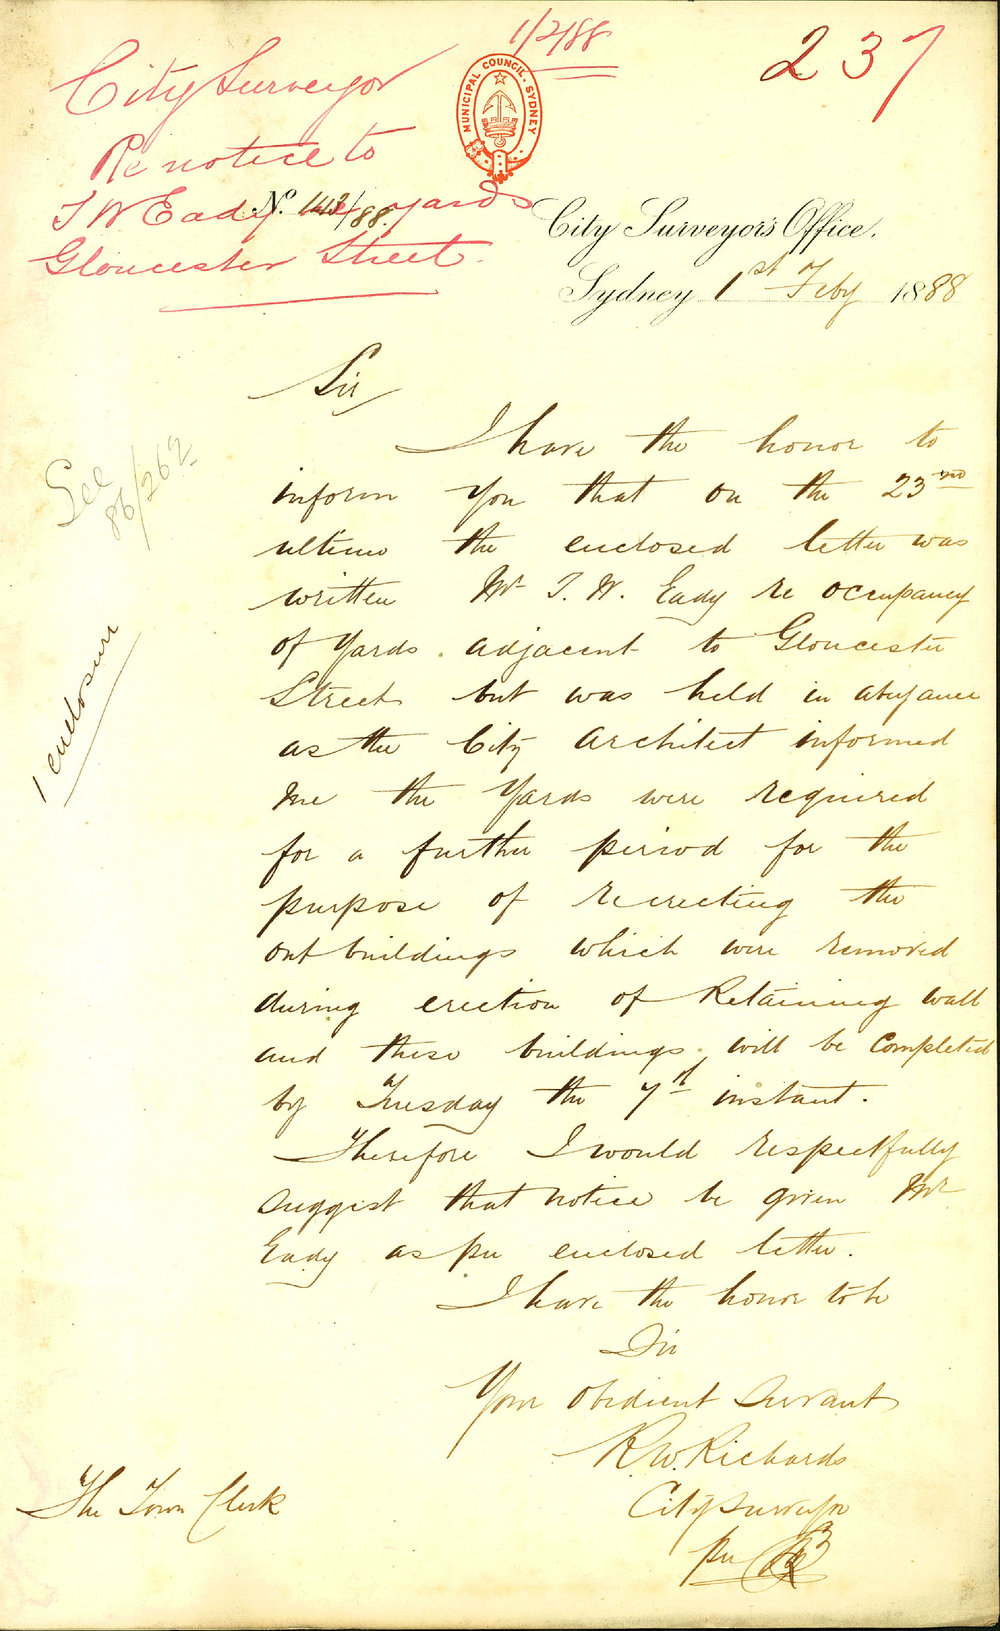 1/2/88
237
City Surveyor
Re notice to
T W Eady yards
Gloucester Street.
MUNICIPAL COUNCIL. SYDNEY
No. 143/88.
City Surveyor's Office.
Sydney 1st Feby 1888
Sir
I have the honor to
inform you that on the 23rd
ultimo the enclosed letter was
written Mr T. W. Eady re occupancy
of Yards adjacent to Gloucester
Street but was held in abeyance
as the City Architect informed
me the Yards were required
for a further period for the
purpose of reerecting the
outbuildings which were removed
during erection of Retaining wall
and these buildings will be completed
by Tuesday the 7th instant.
Therefore I would respectfully
suggest that notice be given Mr
Eady as per enclosed letter.
I have the honor to be
Sir
Your Obedient Servant
R.W. Richards
City Surveyor
per
The Town Clerk
See
86/262
1 enclosure